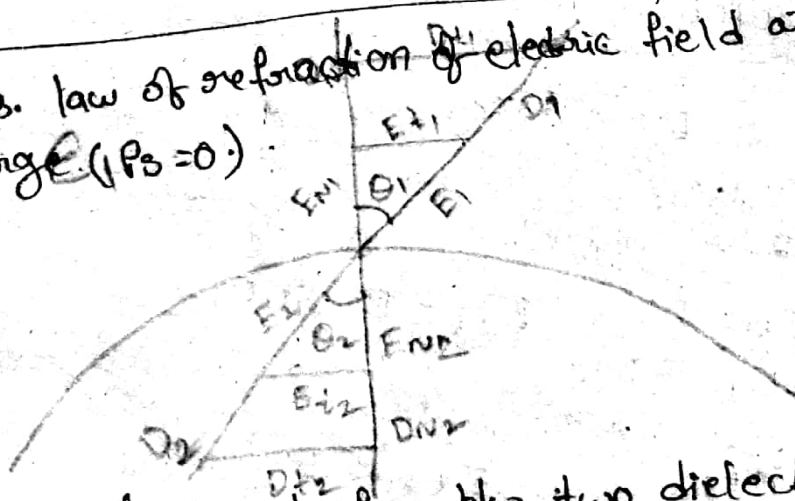 3. law of refraction of electric field a
rge (ρs =0.) :
Dt1
D1
Et1
EN1
θ1
E1
E2
θ2
EN2
Et2
DN2
D2
Dt2
dielec